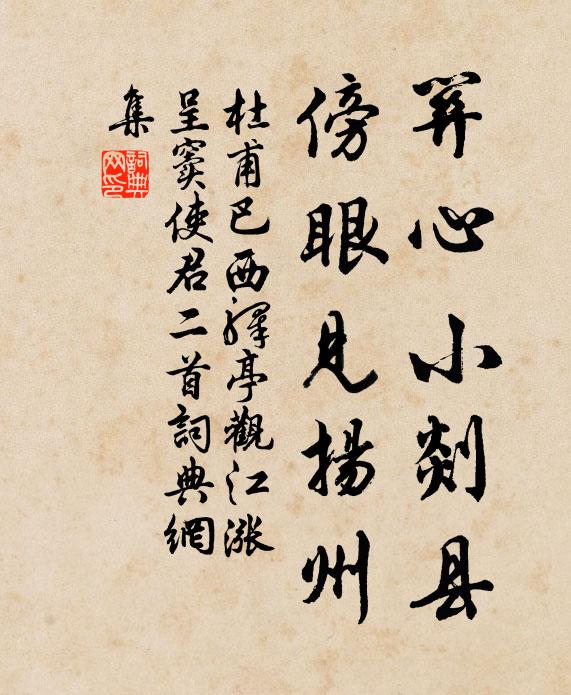 关心小剡县
傍眼見揚州
杜甫巴西驛亭觀江漲
呈窦使君二首詞典網
集
詞典
网印